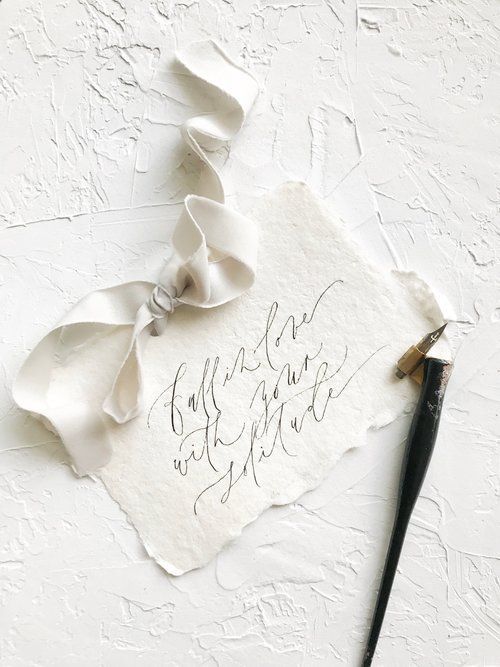 fall in love
with your
solitude